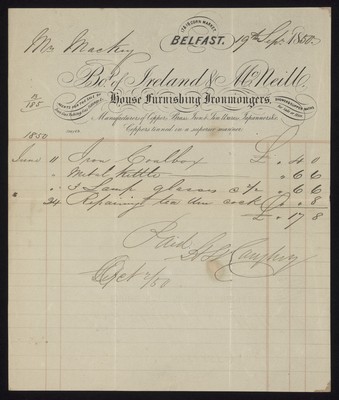 BELFAST. 19th Sepr. 1850
Mr Mackey
Bot. of Ireland & McNeill.
House Furnishing Ironmongers,
Manufacturers of Copper, Brass, Iron & Tin Wares, Japanners &c.
Coppers tinned in a superior manner
1850
June 11 Iron Coalbox £ " 4 0
" Metal Kettle " 6 6
" 3 Lamp glasses 2/2 " 6 6
24 Repairing tea Urn cock " " 8
£ " 17 8
Paid
Oct 2/50